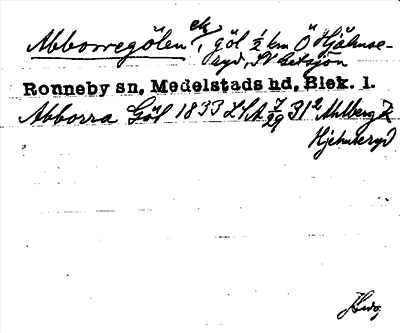 Abborregölen, ek, göl ½ km Ö Hjälmse-
ryd, SV Getsjön
Ronneby sn, Medelstads hd, Blek. l.
Abborra Göl 1833 LSA 7/29 31² Ahlberg
Hjelmseryd